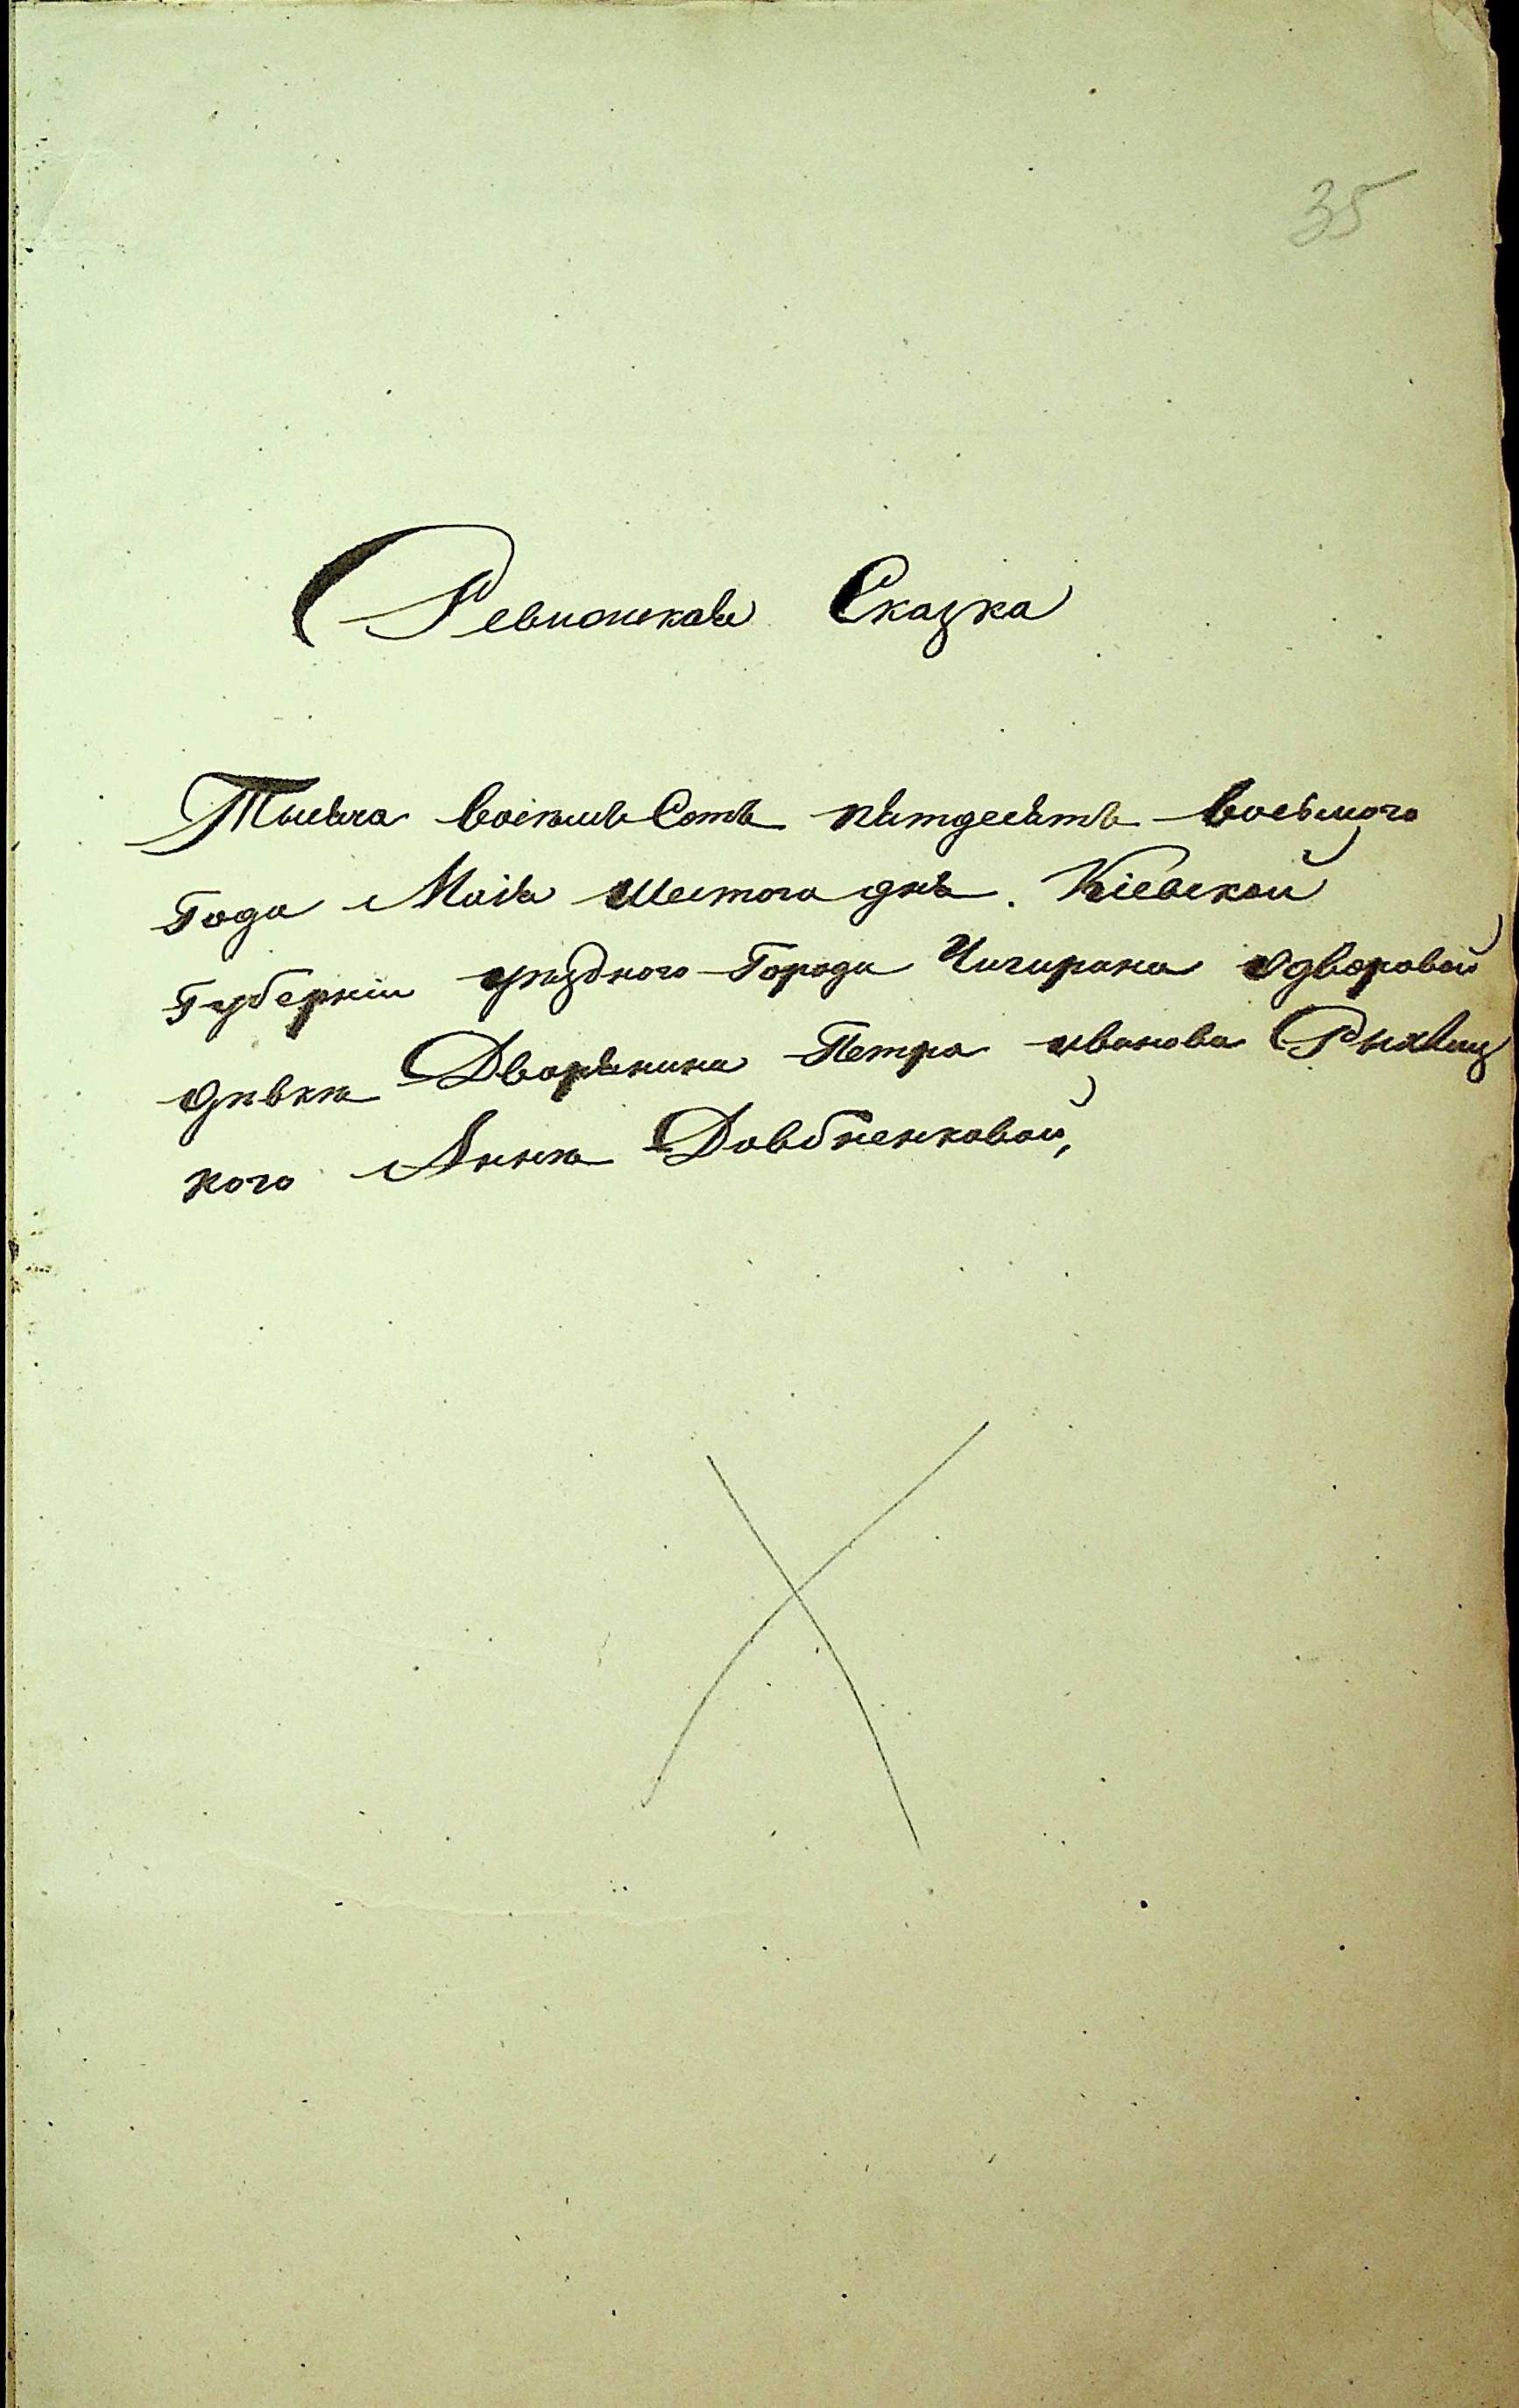 35
Ревизская Сказка
Тысяча восемь Сотъ пятдесятъ восьмого
Года Маія шестого дня. Кіевской
Губерніи уѣзднаго Города Чигирина о дворовой
дѣвкѣ Дворянина Петра иванова
кого Аннѣ Довбненковой,